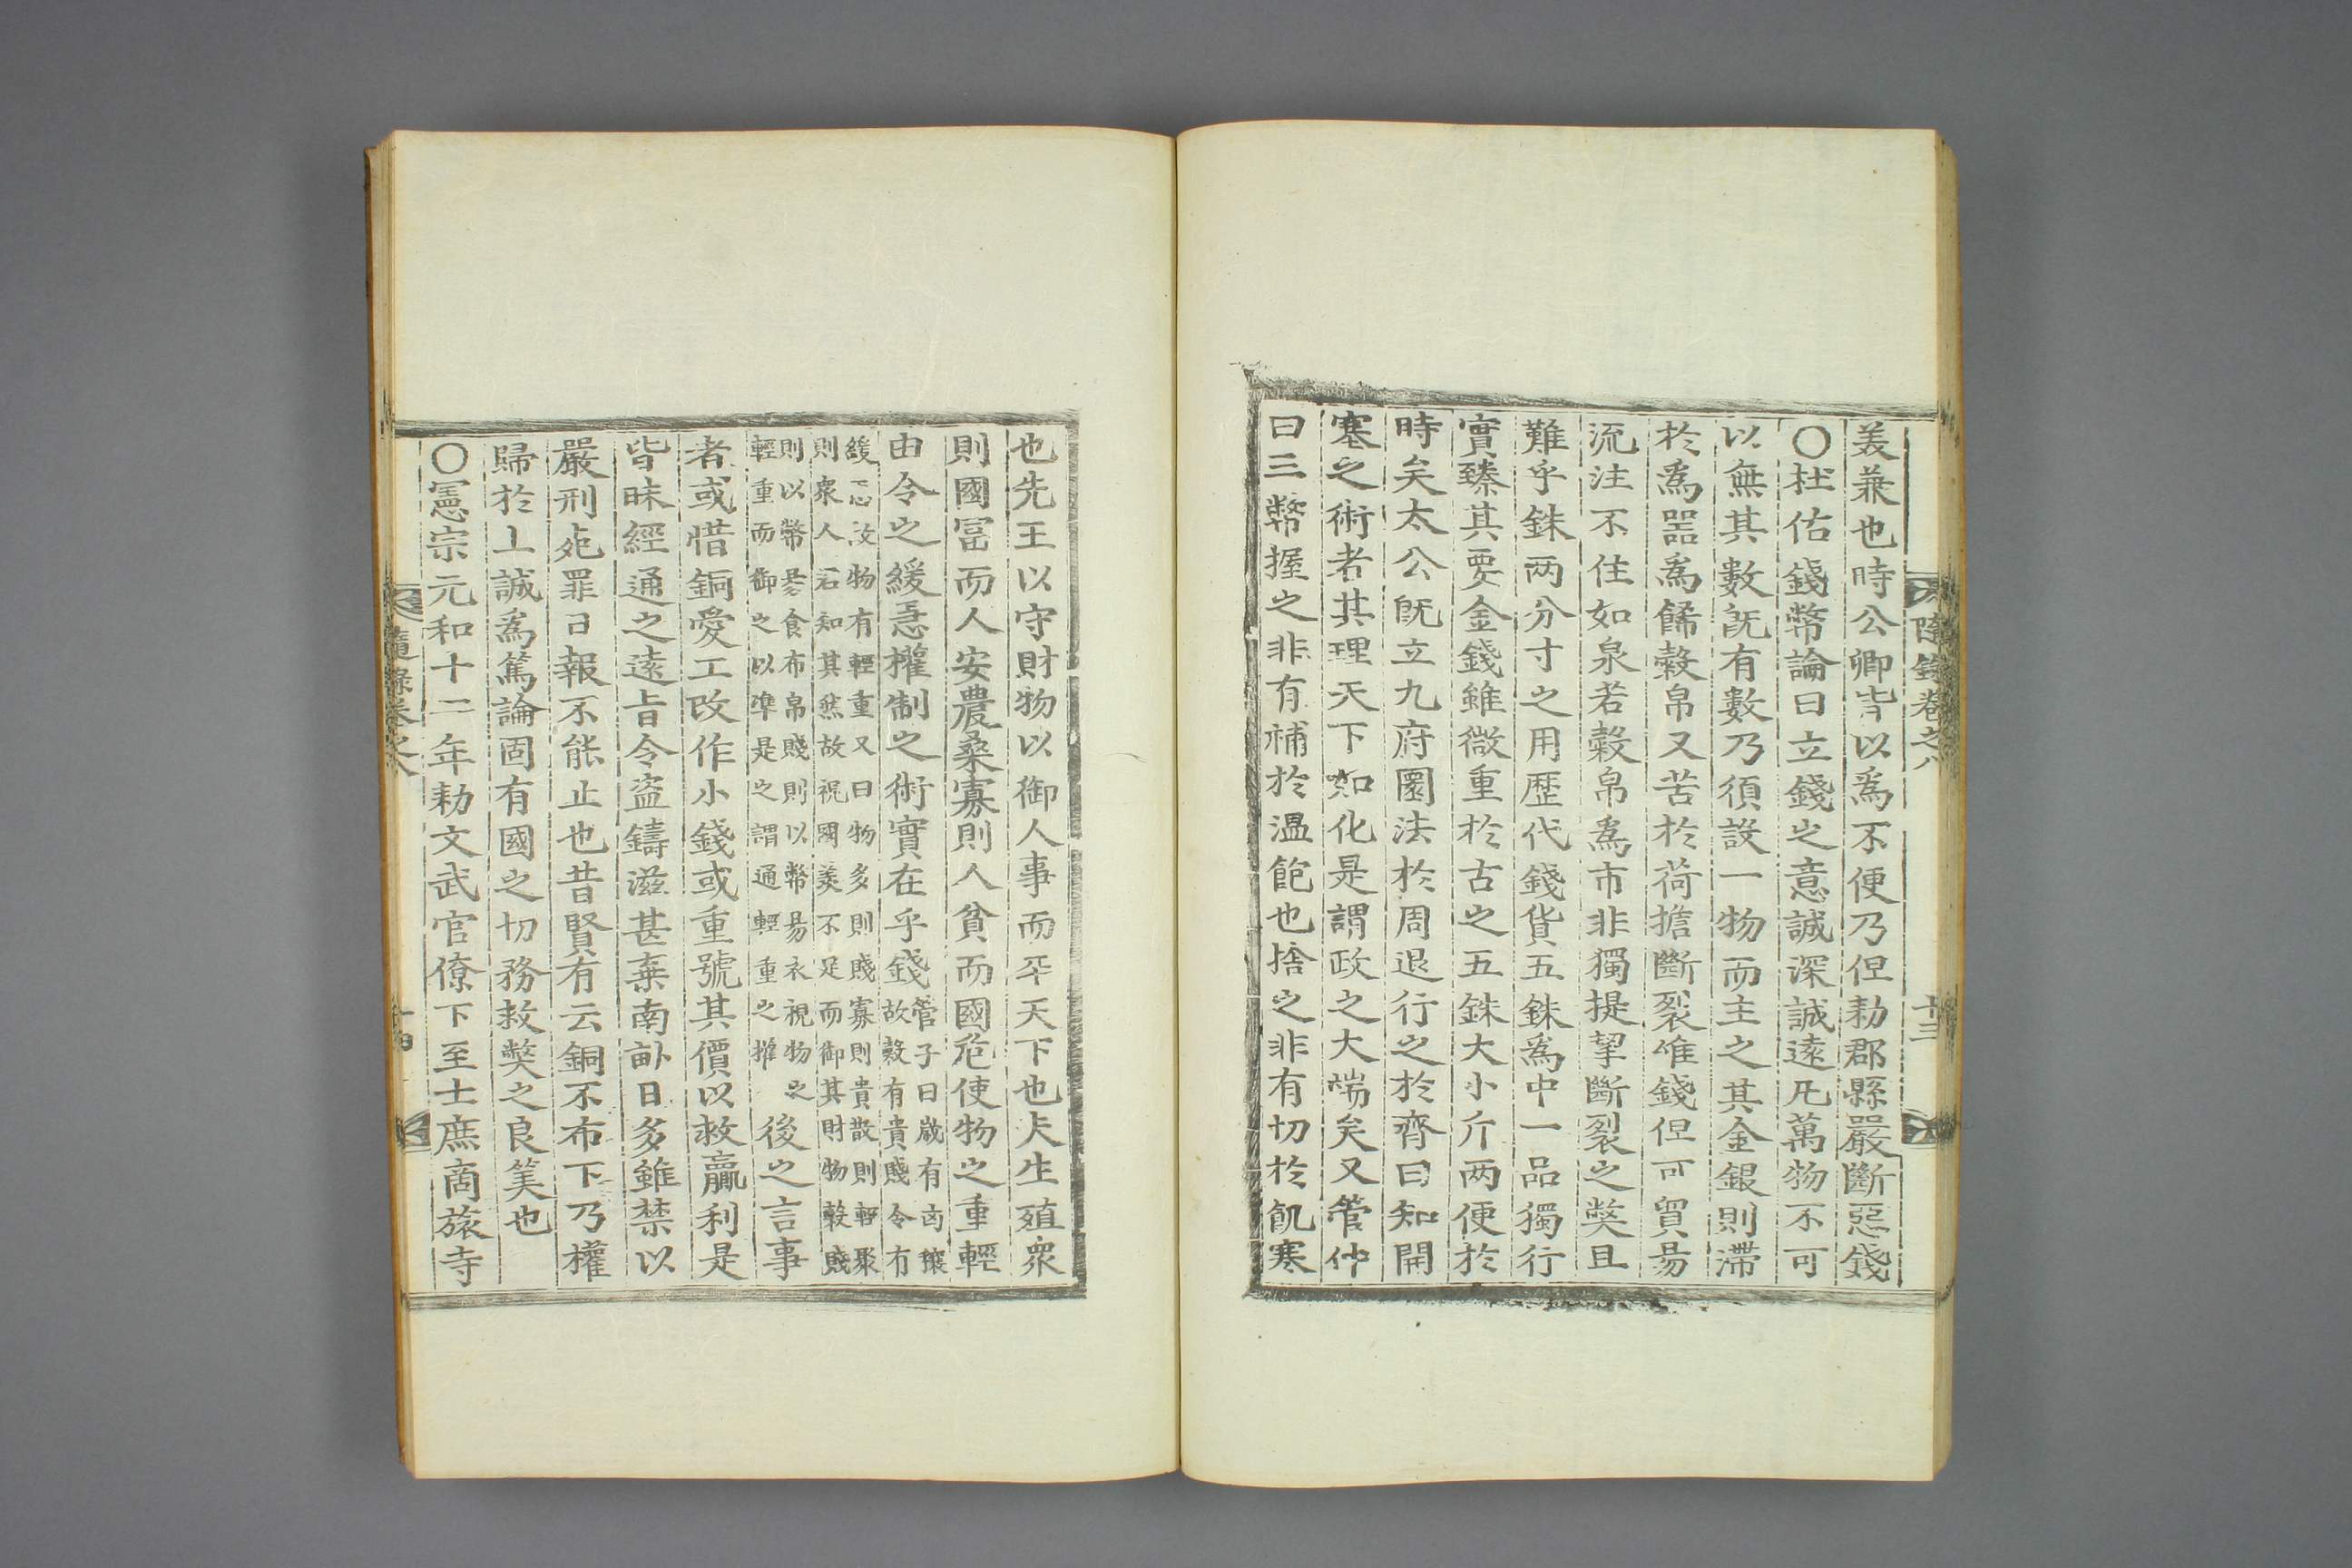 隨錄卷之八
十三
美兼也時公卿皆以爲不便乃但勑郡縣嚴斷惡錢
〇杜佑錢幣論曰立錢之意誠深誠遠凡萬物不可
以無其數旣有數乃須設一物而主之其金銀則滯
於爲器爲餙糓帛又苦於荷擔斷裂唯錢但可貿易
流注不住如泉若糓帛爲市非獨提挈斷裂之獘且
難乎銖两分寸之用歷代錢貨五銖爲中一品獨行
實臻其要金錢雖微重於古之五銖大小斤两便於
時矣太公旣立九府圜法於周退行之於齊曰知開
塞之術者其理天下如化是謂政之大端矣又管仲
曰三幣握之非有補於溫飽也捨之非有切於飢寒
也先王以守財物以御人事而平天下也夫生殖衆
則國冨而人安農桑寡則人貧而國危使物之重輕
由令之緩急權制之術實在乎錢管子曰歲有凶穰
故糓有貴賤令有
緩急故物有輕重又曰物多則賤寡則貴散則輕聚
則衆人君知其然故視國羨不足而御其財物糓賤
則以幣易食布帛賤則以幣易衣視物之
輕重而御之以準是之謂通輕重之權後之言事
者或惜銅愛工改作小錢或重號其價以救贏利是
皆昧經通之遠旨令盜鑄滋甚棄南畝日多雖禁以
嚴刑死罪日報不能止也昔賢有云銅不布下乃權
歸於上誠爲篤論固有國之切務救獘之良筭也
〇憲宗元和十二年勑文武官僚下至士庶商旅寺
隨錄卷之八
十四